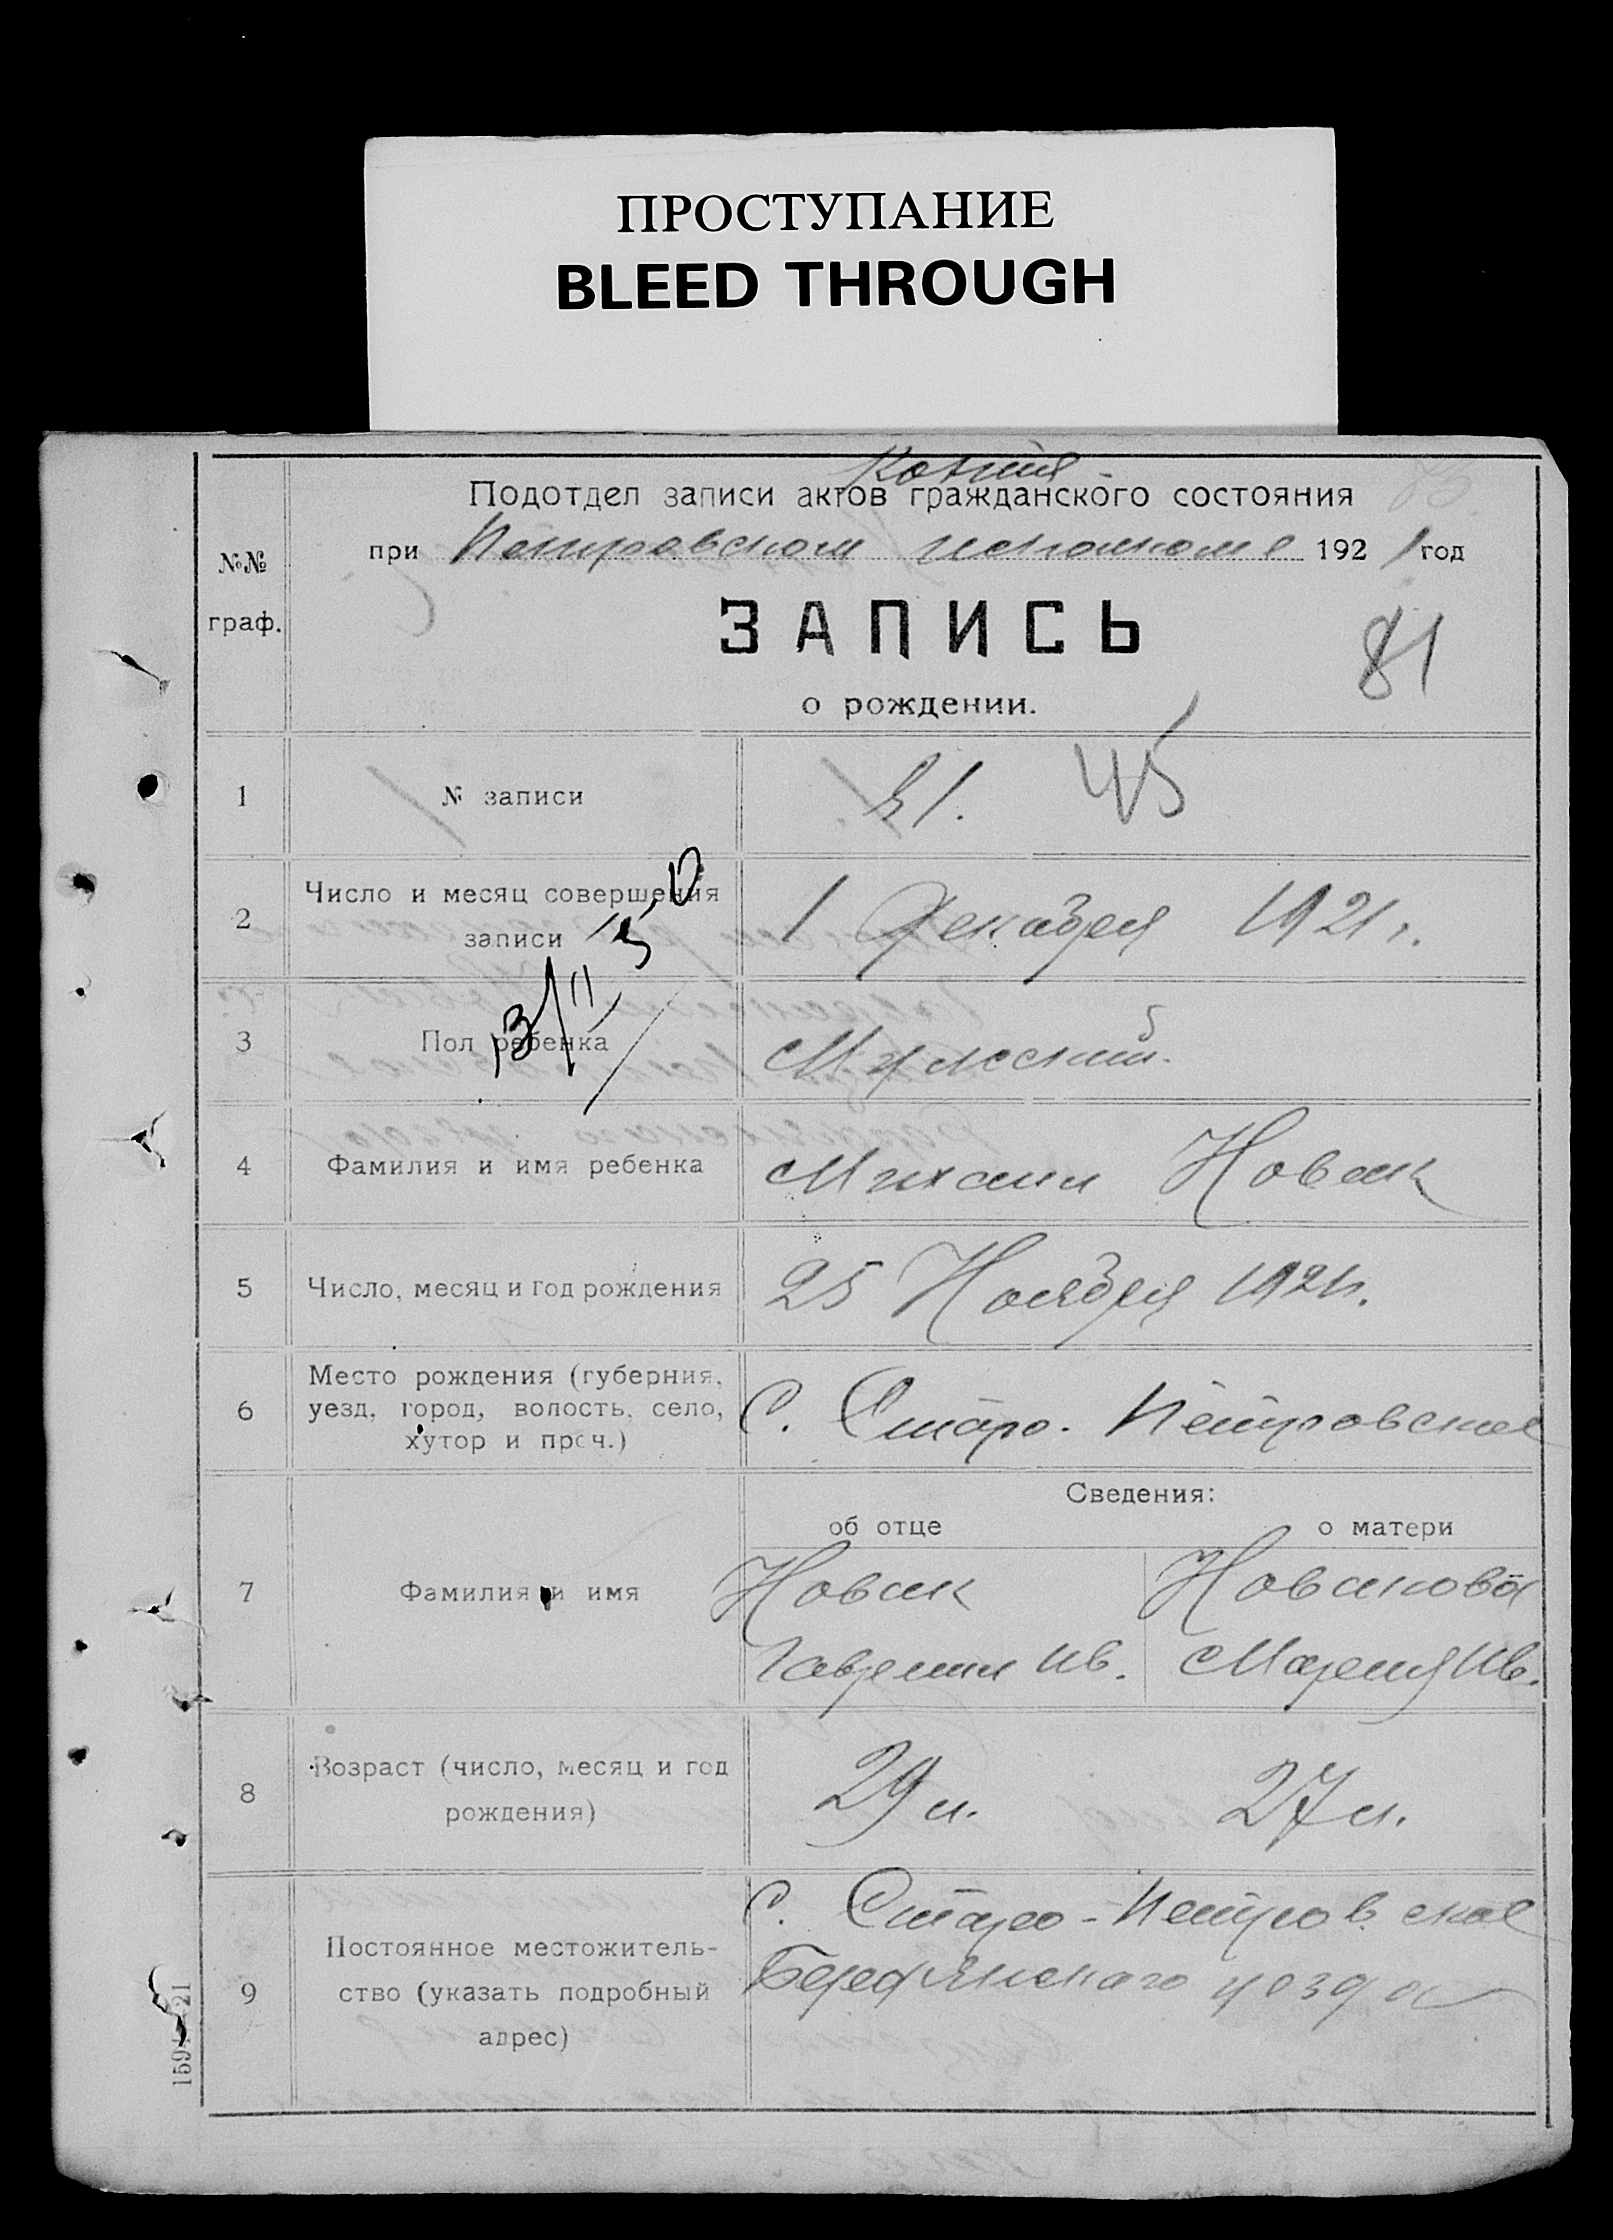 ПРОСТУПАНИЕ
BLEED THROUGH
Копия
Подотдел записи актов гражданского состояния
при Петровском исполкоме 1921 год
№№
граф.
ЗАПИСЬ
81
о рождении.
1 № записи 81. 45
2 Число и месяц совершения
записи 1 Декабря 1921 г.
3 Пол ребенка Мужский.
4 Фамилия и имя ребенка Михаил Новак
5 Число, месяц и год рождения 25 Ноября 1921 г.
6 Место рождения (губерния,
уезд, город, волость, село,
хутор и проч.) С. Старо-Петровское
Сведения:
об отце о матери
7 Фамилия и имя Новак Новакова
Гавриил Ив. Мария Ив.
8 Возраст (число, месяц и год
рождения) 29 л. 27 л.
С. Старо-Петровское
9 Постоянное местожитель-
ство (указать подробный
адрес) Бердянского уезда